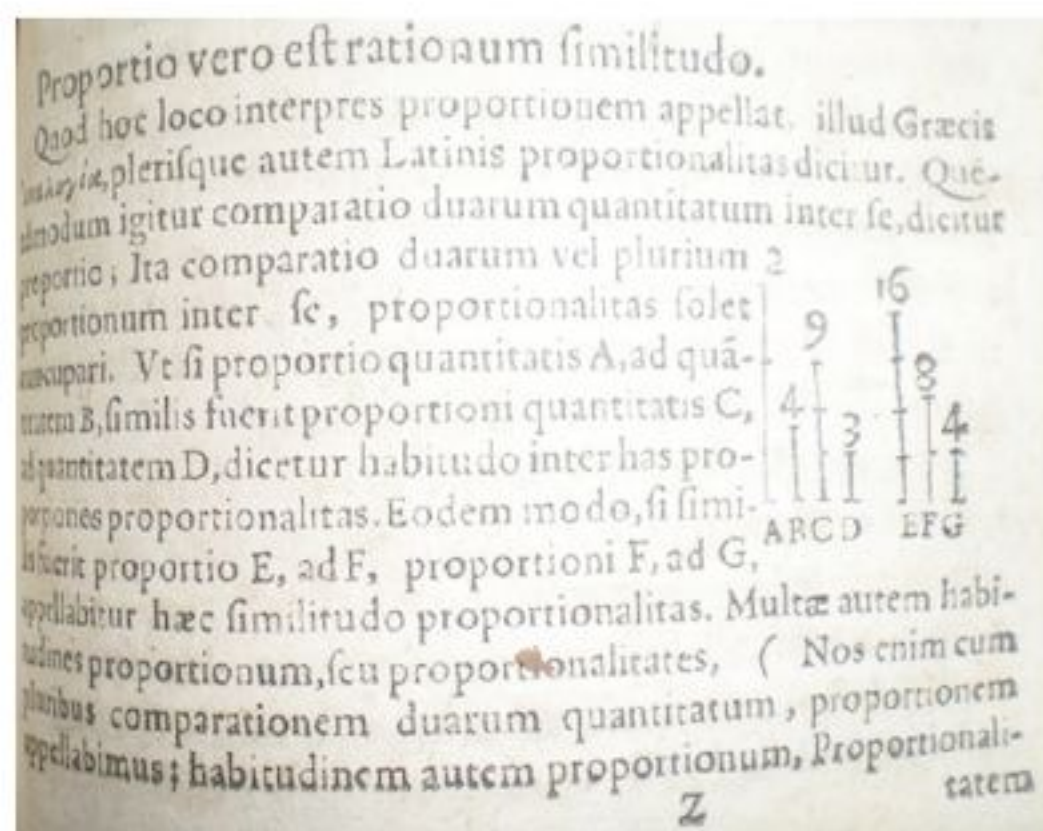 Proportio vero eſt rationum ſimilitudo.
Quod hoc loco interpres proportionem appellat, illud Græcis
pleriſque autem Latinis proportionalitas dicitur. Quē-
admodum igitur comparatio duarum quantitatum inter ſe, dicitur
proportio; Ita comparatio duarum vel plurium
proportionum inter ſe, proportionalitas ſolet
nuncupari. Vt ſi proportio quantitatis A, ad quā-
titatem B, ſimilis fuerit proportioni quantitatis C,
ad quantitatem D, dicetur habitudo inter has pro-
portiones proportionalitas. Eodem modo, ſi ſimi-
lis fuerit proportio E, ad F, proportioni F, ad G,
appellabitur hæc ſimilitudo proportionalitas. Multæ autem habi-
tudines proportionum, ſeu proportionalitates, ( Nos enim cum
pluribus comparationem duarum quantitatum, proportionem
appellabimus; habitudinem autem proportionum, Proportionali-
Z
tatem
2
4
9
3
16
8
4
ABCD
EFG